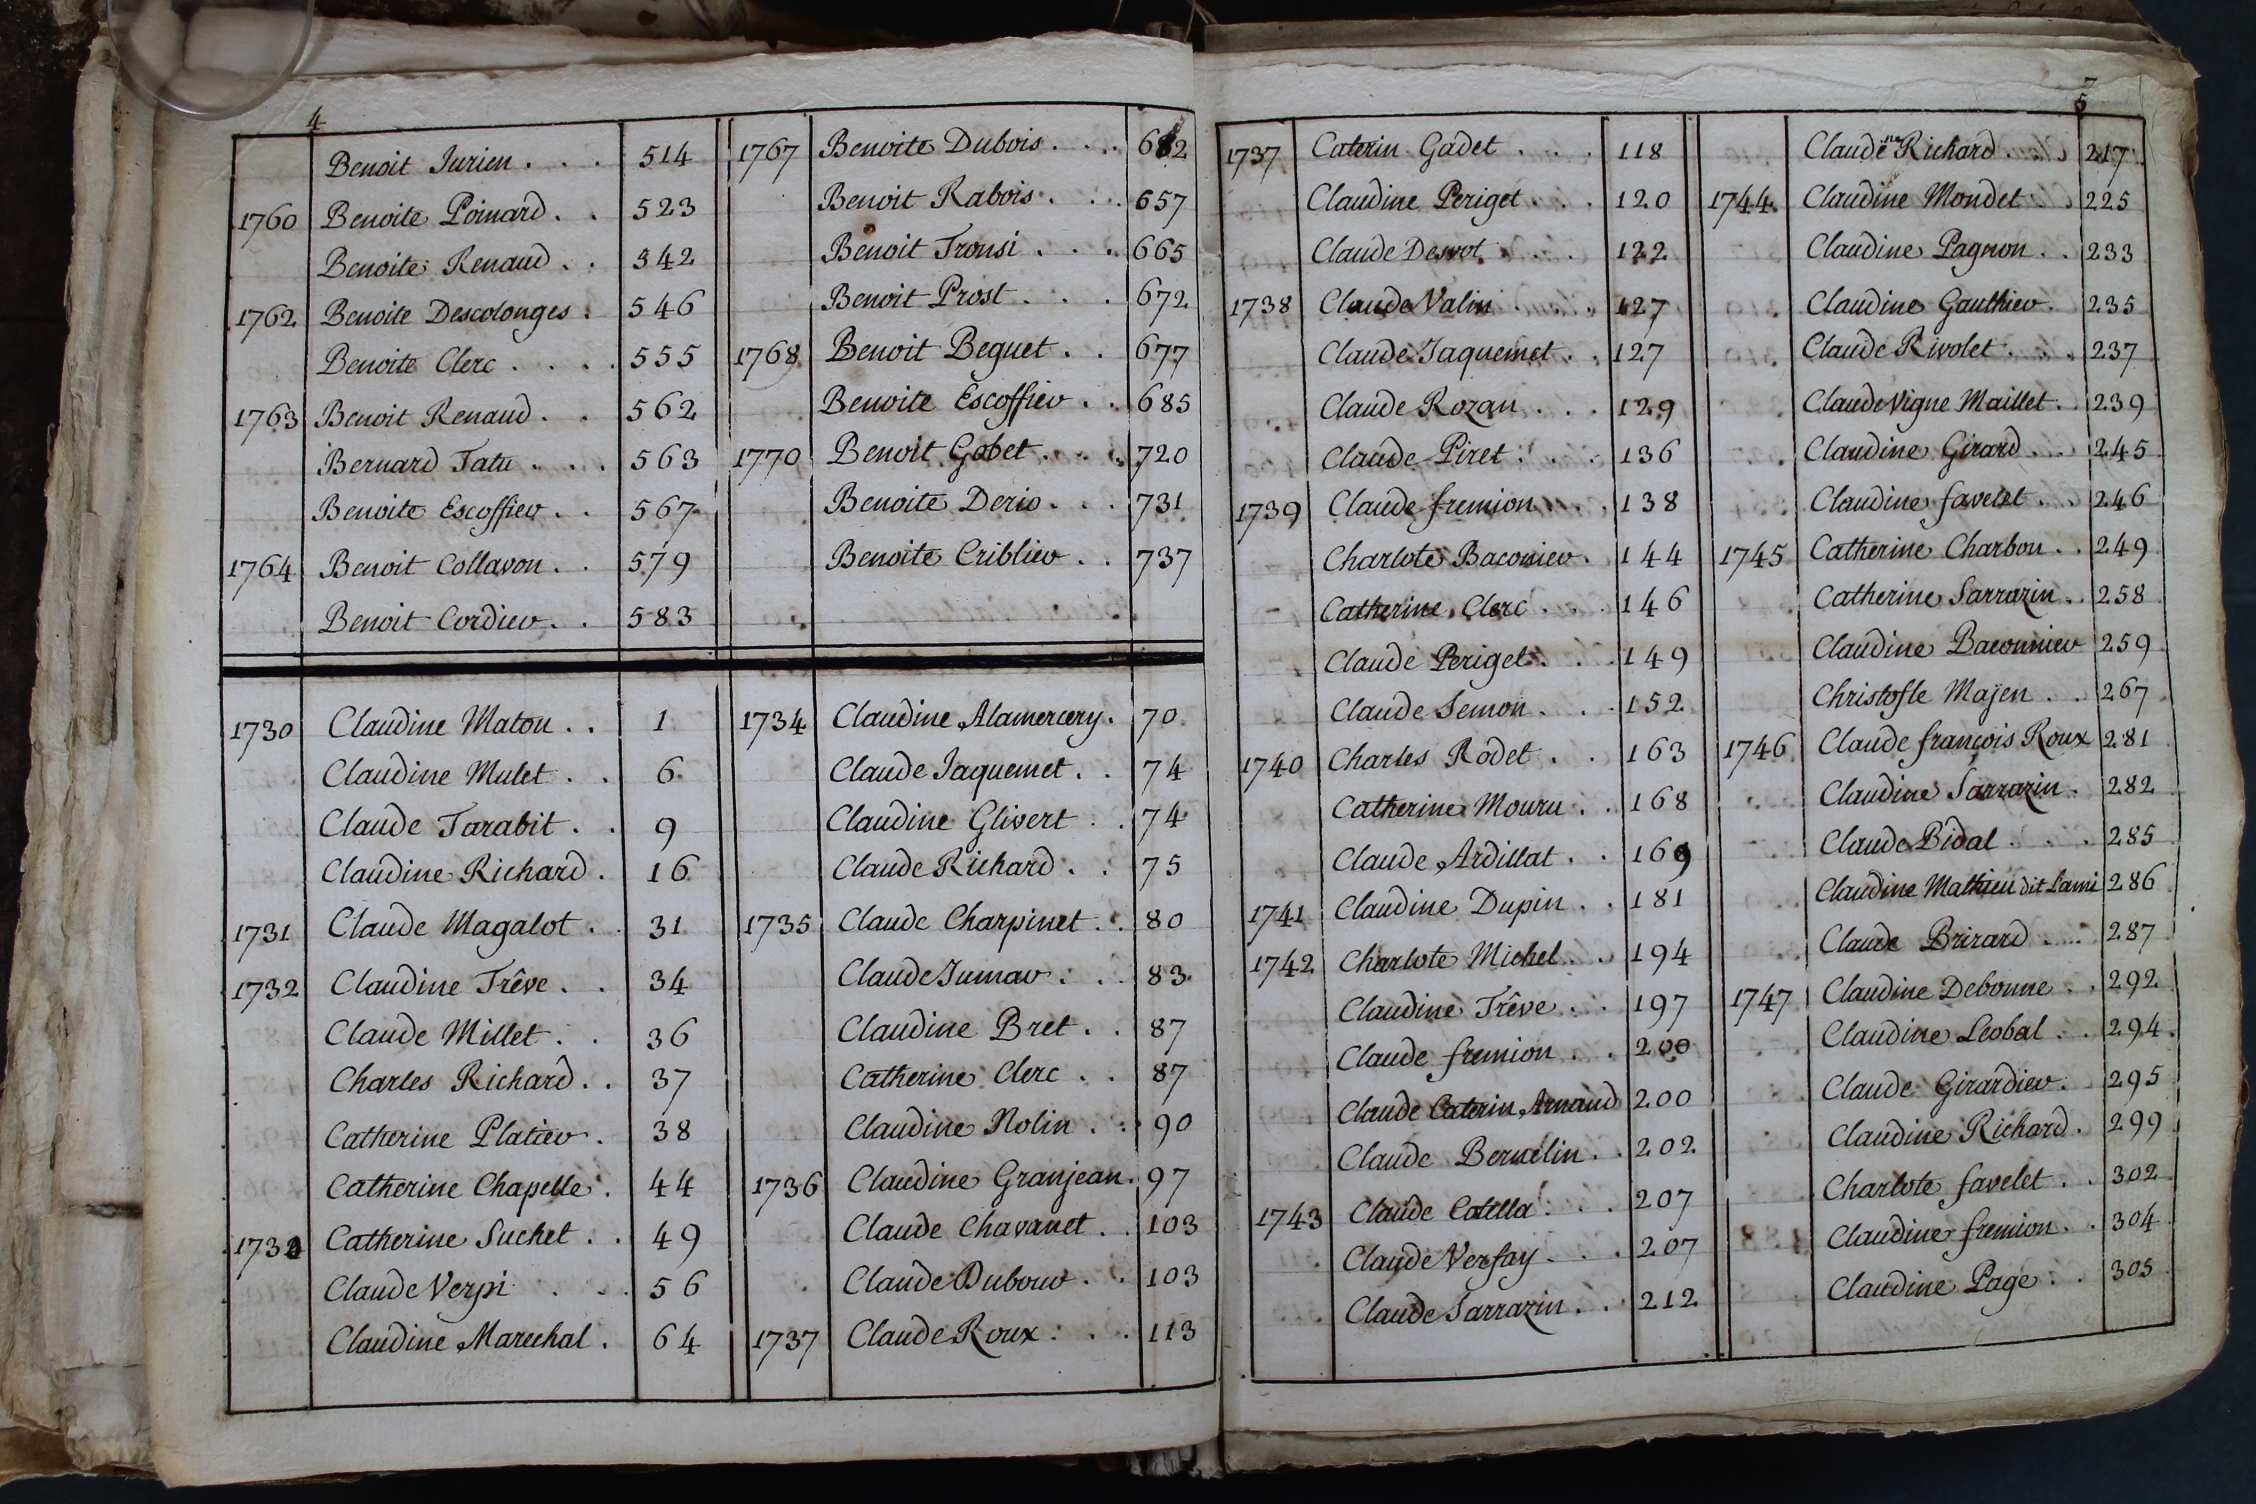 4
Benoit Jurien . . . 514
1760 Benoite Poinard . . 523
Benoite Renaud . . 342
1762 Benoite Descolonges . 546
Benoite Clerc . . . . 555
1763 Benoit Renaud . . 562
Bernard Tatu . . . 563
Benoite Escoffier . . 567
1764 Benoit Collavon . . 579
Benoit Cordier . . 583
1767 Benoite Dubois . . . 
Benoit Rabois . . . 657
Benoit Tronsi . . . 665
Benoit Prost . . . 672
1768 Benoit Beguet . . 677
Benoite Escoffier . . 685
1770 Benoit Gobet . . . 720
Benoite Derio . . . 731
Benoite Criblier . . 737
1730 Claudine Maton . . 1
Claudine Mulet . . 6
Claude Tarabit . . 9
Claudine Richard . 16
1731 Claude Magalot . 31
1732 Claudine Trêve . . 34
Claude Millet . . 36
Charles Richard . . 37
Catherine Platier . 38
Catherine Chapelle . 44
Catherine Suchet . . 49
Claude Verpi . . . 56
Claudine Marechal . 64
1734 Claudine Alamercery . 70
Claude Jaquemet . . 74
Claudine Glivert . . 74
Claude Richard . . 75
1735 Claude Charpinet . . 80
Claude Jumar . . . 83
Claudine Bret . . 87
Catherine Clerc . . 87
Claudine Nolin . . 90
1736 Claudine Granjean . 97
Claude Chavanet . . 103
Claude Dubour . . 103
1737 Claude Roux . . . 113
5
1737 Caterin Gadet . . . 118
Claudine Periget . . . 120
Claude Desrot . . . 122
1738 Claude Valin . . . 127
Claude Jaquemet . . 127
Claude Rozan . . . 129
Claude Piret . . . 136
1739 Claude fremion . . . 138
Charlote Baconier . 144
Catherine Clerc . . . 146
Claude Periget . . . 149
Claude Semon . . . 152
1740 Charles Rodet . . 163
Catherine Mouru . . 168
Claude Ardillat . . 169
1741 Claudine Dupin . . 181
1742 Charlote Michel . . 194
Claudine Trêve . . . 197
Claude fremion . . 200
Claude Caterin Arnaud 200
Claude Bernelin . . 202
1743 Claude Catella . . . 207
Claude Versay . . . 207
Claude Sarrazin . . 212
Claude ne Richard . . 217
1744 Claudine Mondet . . 225
Claudine Pagnon . . 233
Claudine Gauthier . 235
Claude Rivolet . . . 237
Claude Vigne Maillet . 239
Claudine Girard . . 245
Claudine favelet . . 246
1745 Catherine Charbon . . 249
Catherine Sarrazin . . 258
Claudine Baconnier 259
Christofle Majen . . 267
1746 Claude françois Roux 281
Claudine Sarrazin . 282
Claude Bidal . . . 285
Claudine Mathieu dit Lami 286
Claude Brirard . . . 287
1747 Claudine Debonne . . 292
Claudine Leobal . . 294
Claude Girardier . 295
Claudine Richard . 299
Charlote favelet . . 302
Claudine fremion . . 304
Claudine Page . . 305